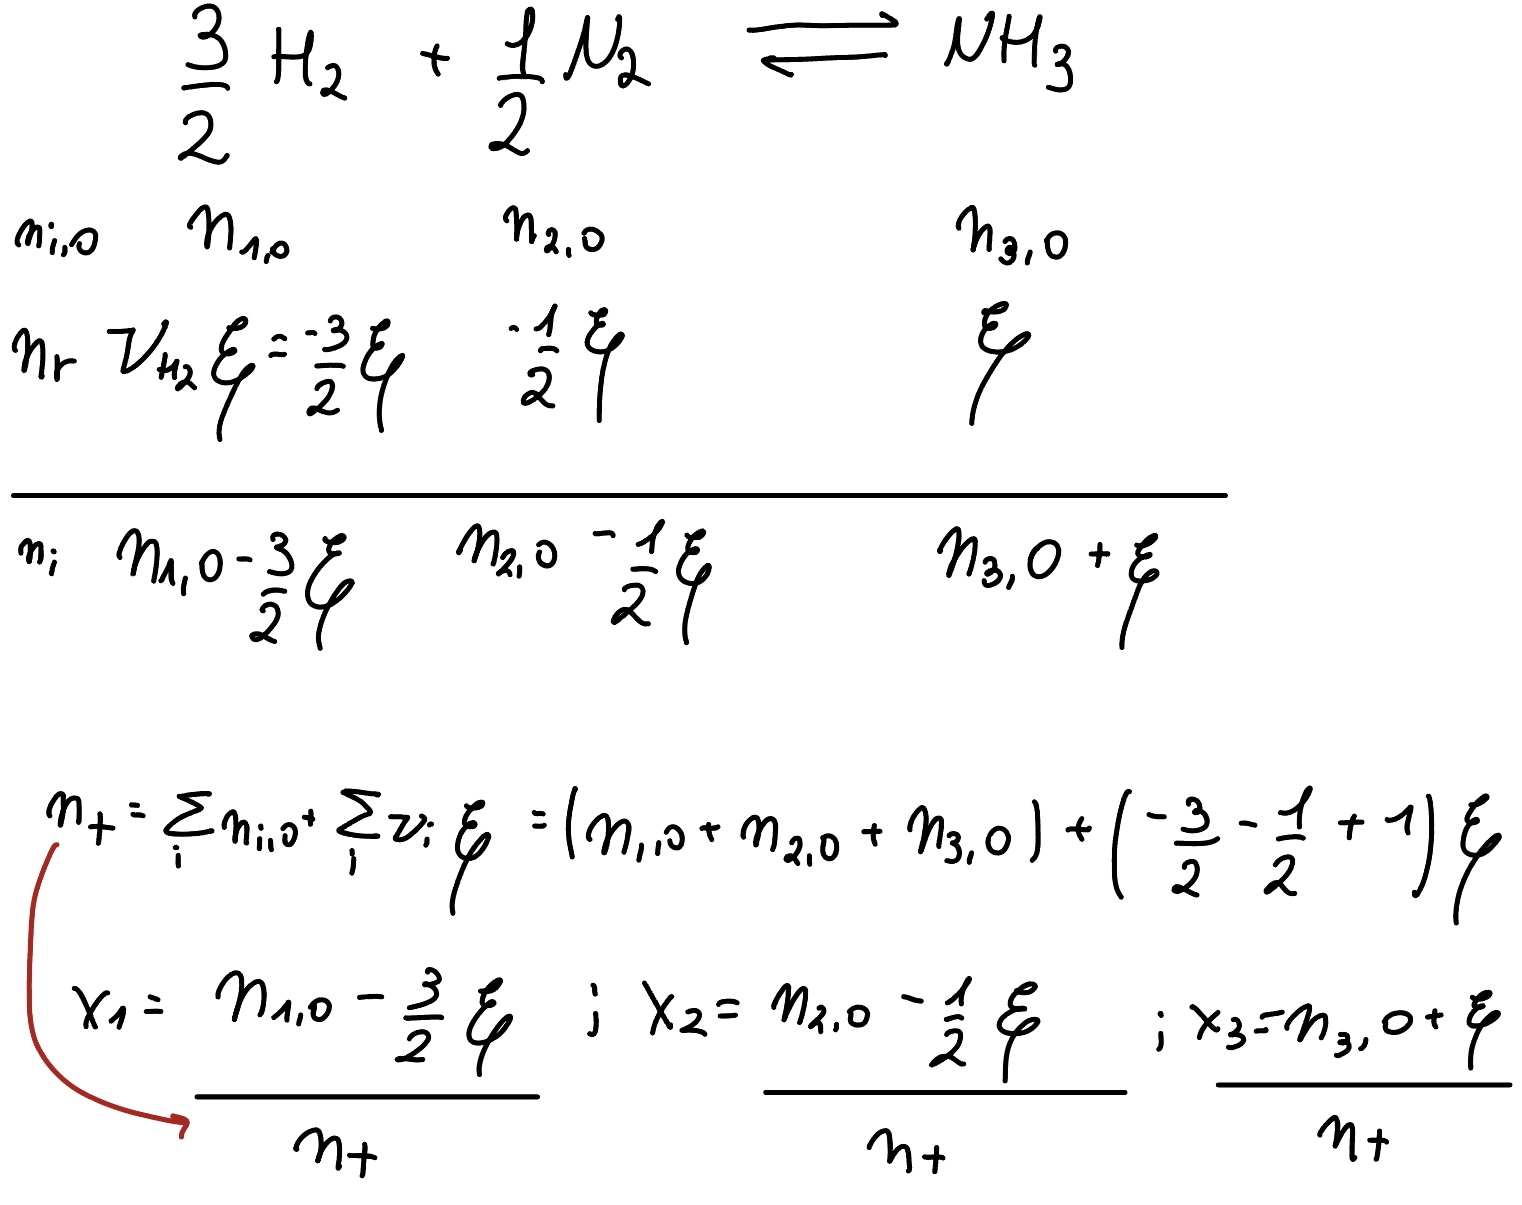 3/2 H₂ + 1/2 N₂ ⇌ NH₃
nᵢ,₀ n₁,₀ n₂,₀ n₃,₀
nᵣ ν_H₂ ξ = -3/2 ξ -1/2 ξ ξ
nᵢ n₁,₀ - 3/2 ξ n₂,₀ - 1/2 ξ n₃,₀ + ξ
n_t = Σᵢ nᵢ,₀ + Σᵢ νᵢ ξ = (n₁,₀ + n₂,₀ + n₃,₀) + (-3/2 - 1/2 + 1) ξ
x₁ = (n₁,₀ - 3/2 ξ)/n_t ; x₂ = (n₂,₀ - 1/2 ξ)/n_t ; x₃ = (n₃,₀ + ξ)/n_t